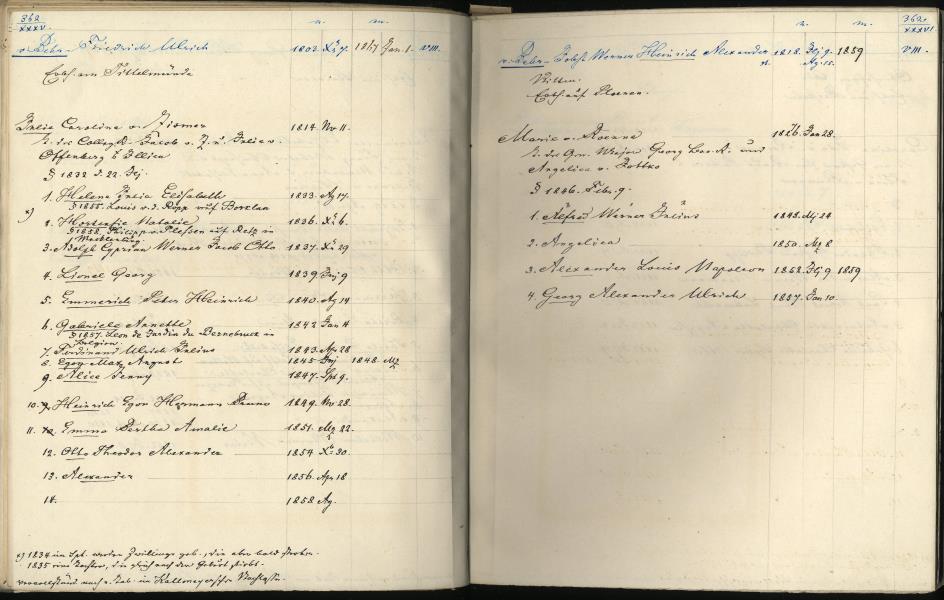 362
XXXV.
n.
m.
v. Behr- Friedrich Ulrich 1803. Xb 7. 1867 Jan. 1. VIII.
Erbh. von Tittelmünde
Julia Carolina v. 1814 Nv 11.
Offenberg
§ 1832 d. 22.
1. Helene Julia Elisabeth 1833. Ag 17.
§ 1855. Louis v. d. Ropp auf
x) 2. Hortensie Natalie 1836. Xb 6.
§ 1858. Philipp v. Plessen auf in
Mecklenburg
3. Adolph Cyprian Werner Jacob Otto 1837. Xb 29
4. Lionel Georg 1839 9
5. Emmerich Peter Heinrich 1840. Ag 14
6. Gabriele Annette 1842 Jan 11
§ 1857. Leon de Jardin de in
Belgien.
7. Ferdinand Ulrich Julius 1843. Apr 28
8. Egon Max August 1845 1848. Mz
9. Alice Jenny 1847. Spt 9.
10. Heinrich Egon Hermann Bruno 1849. Nv 28.
11. Emma Bertha Amalie 1851. Mz 22.
12. Otto Theodor Alexander 1854 Xb 30.
13. Alexander 1856. Apr 18
14. 1858 Ag.
x) 1834 im Spt. wurden Zwillinge geb., die aber bald starben.
1835 eine Tochter, die gleich nach der Geburt stirbt.
n. Tab. im Kallmeyerschen Nachlasse.
n.
m.
362
XXXVI.
v. Behr- Jobst Werner Heinrich Alexander 1818. 9. 1859 VIII.
Ag. 15.
Erbh. auf
Marie v. 1826. Jan 28.
T. des Gen. Major Georg und
Angelica v.
§ 1846. Febr. 9.
1. Alfred Werner Julius 1848. 24
2. Angelica 1850. Mz 8
3. Alexander Louis Napoleon 1852. 9 1859
4. Georg Alexander Ulrich 1857. Jan 10.